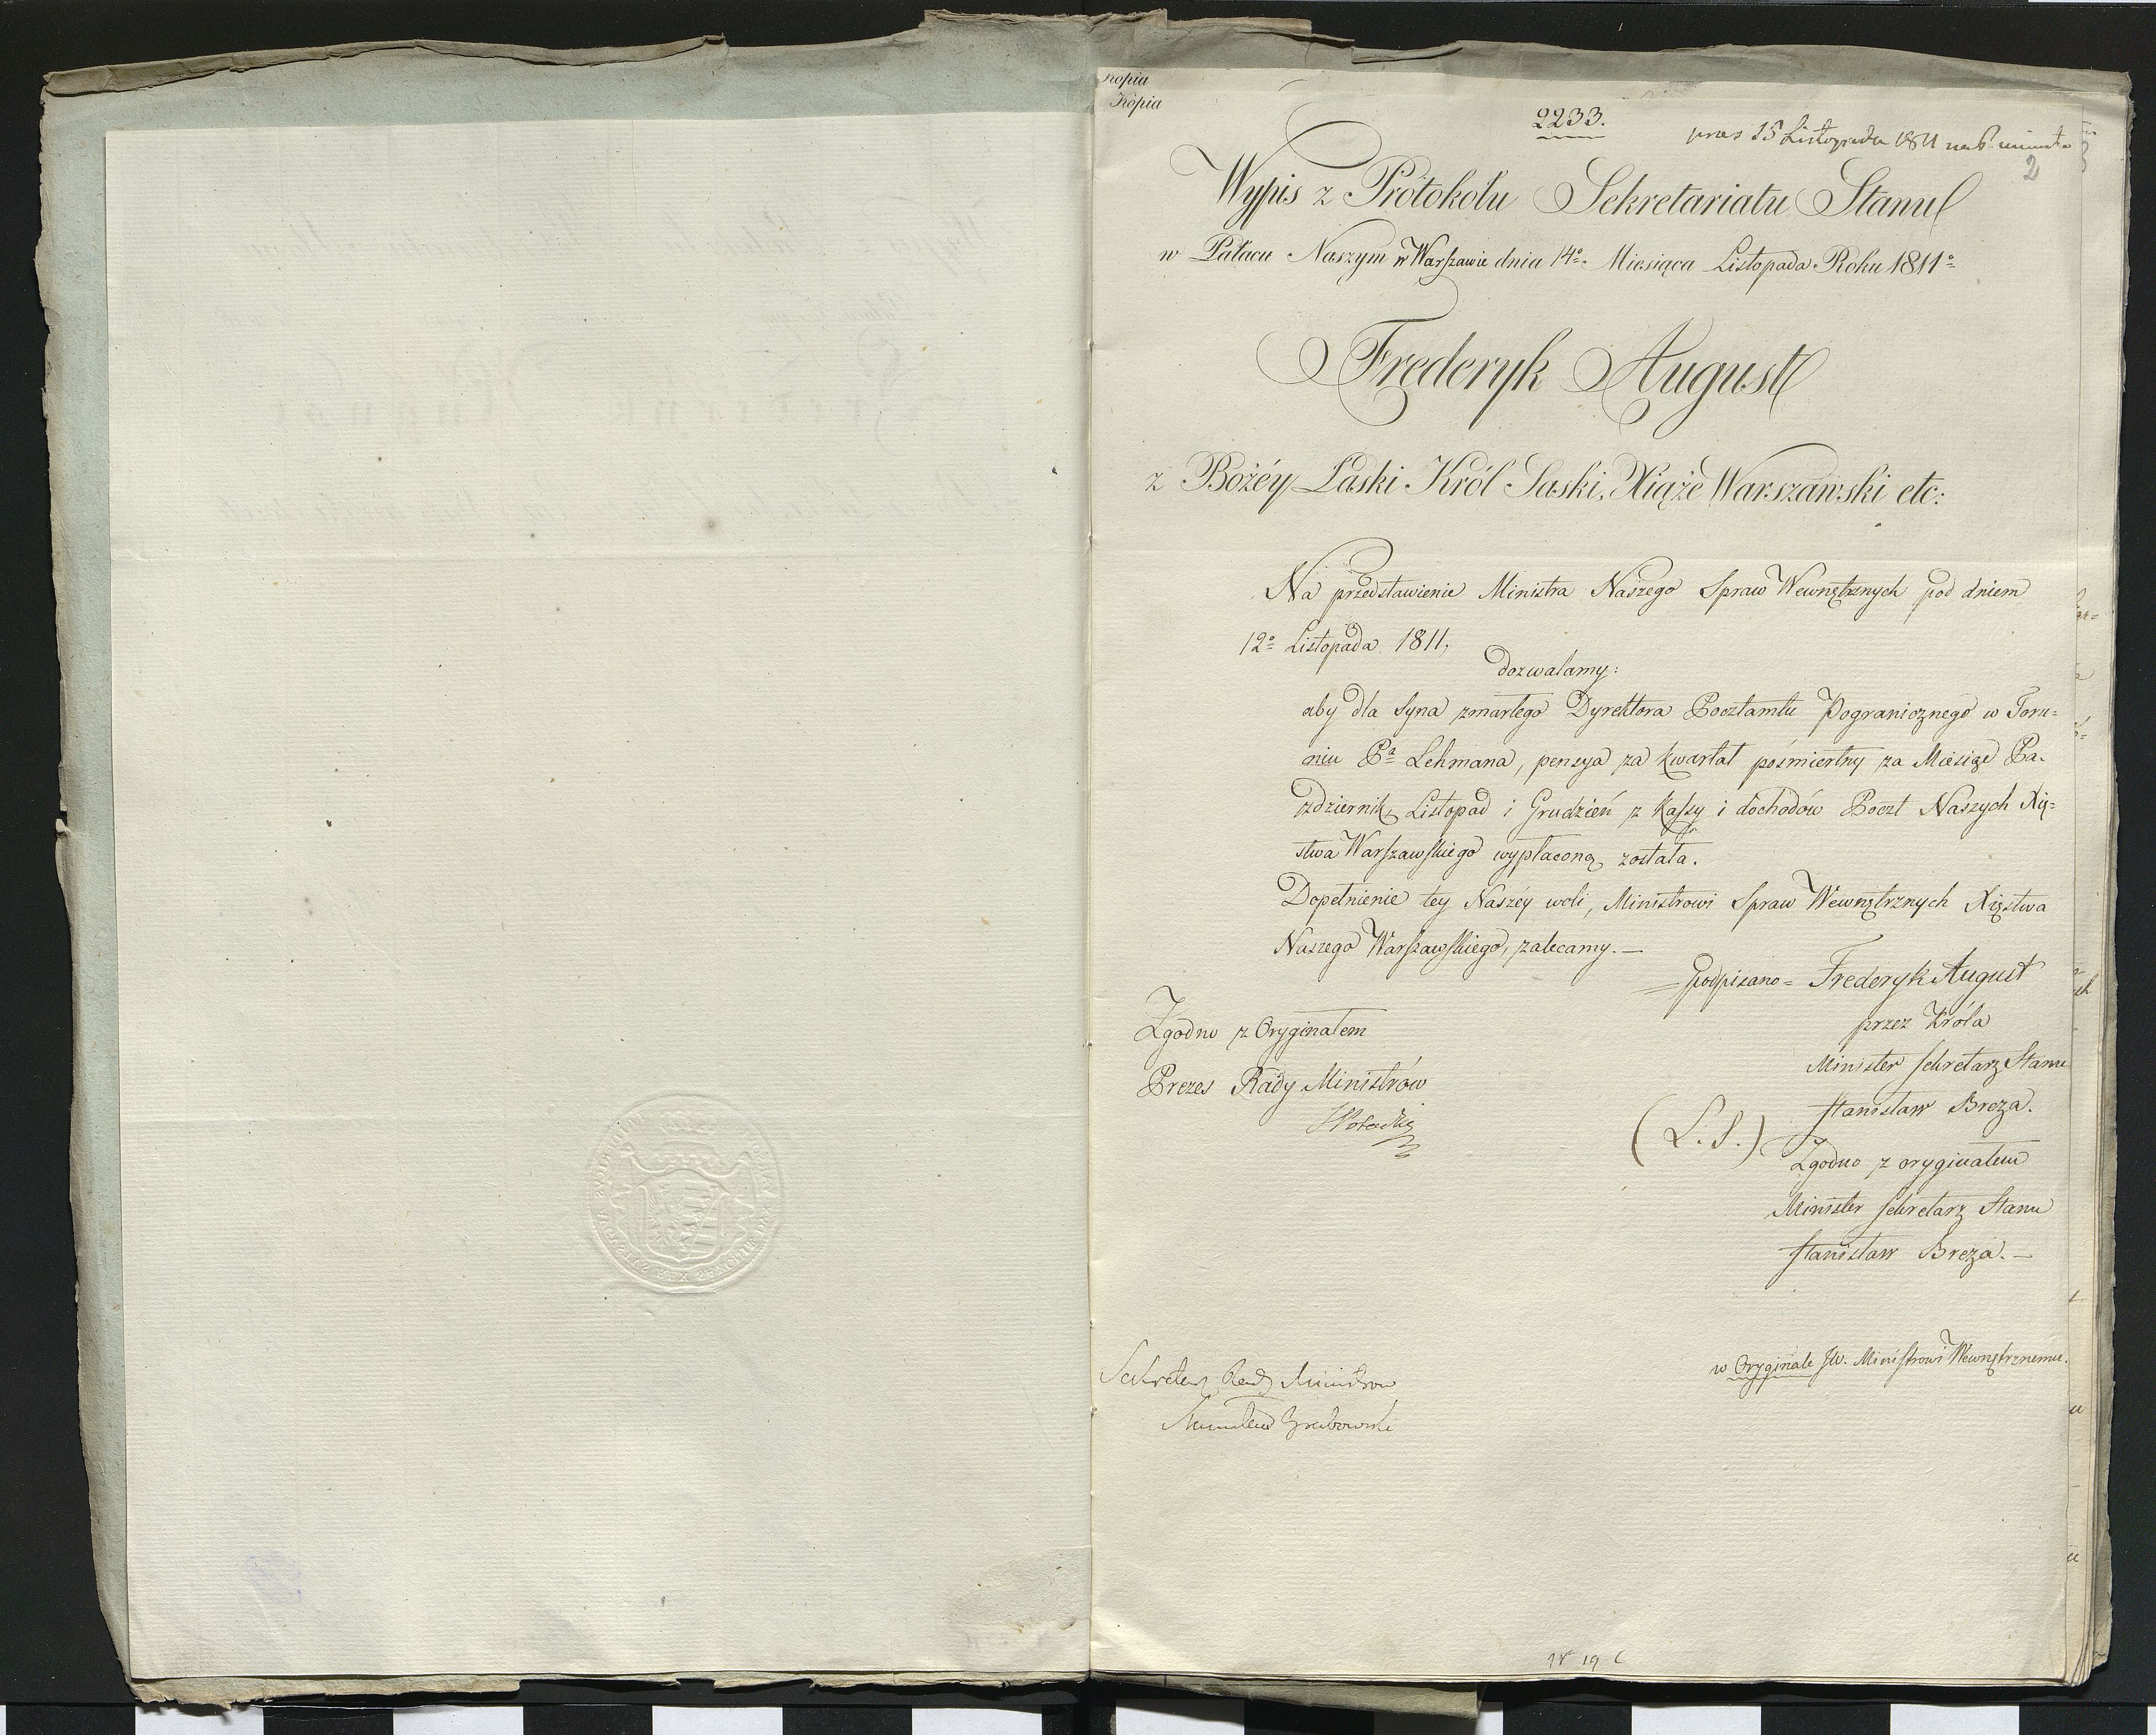 Kopia
Kopia
2233.
pras 15 Listopada 1811
2
Wypis z Protokołu Sekretariatu Stanu
w Pałacu Naszym w Warszawie dnia 14º Miesiąca Listopada Roku 1811º
Frederyk August
z Bożéy Łaski Król Saski, Xiąże Warszawski etc:
Na przedstawienie Ministra Naszego Spraw Wewnętrznych pod dniem
12º Listopada 1811,
dozwalamy:
aby dla Syna zmarłego Dyrektora Pocztamtu Pogranicznego w Toru=
niu Pª Lehmana, pensya za kwartał pośmiertny za Miesiąc Pa-
ździernik, Listopad i Grudzień z Kassy i dochodów Poczt Naszych Xię=
stwa Warszawskiego wypłaconą została.
Dopełnienie tey Naszéy woli, Ministrowi Spraw Wewnętrznych Xięstwa
Naszego Warszawskiego, zalecamy. —
= podpisano = Frederyk August
przez Króla
Minister Sekretarz Stanu
Stanisław Breza.
(L. S.)
Zgodno z oryginałem
Minister Sekretarz Stanu
Stanisław Breza. —
Zgodno z Oryginałem
Prezes Rady Ministrów
SPotocki
w Oryginale JW. Ministrowi Wewnętrznemu.
Sekretarz Rady Ministrow
Stanisław Grabowski